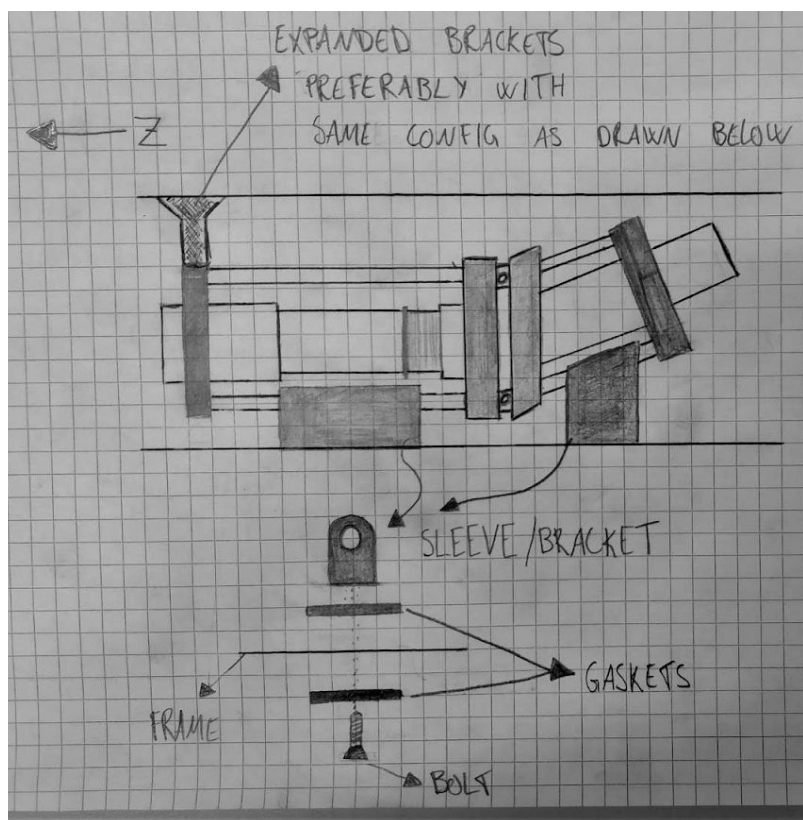 EXPANDED BRACKETS
PREFERABLY WITH
SAME CONFIG AS DRAWN BELOW
Z
SLEEVE/BRACKET
GASKETS
FRAME
BOLT